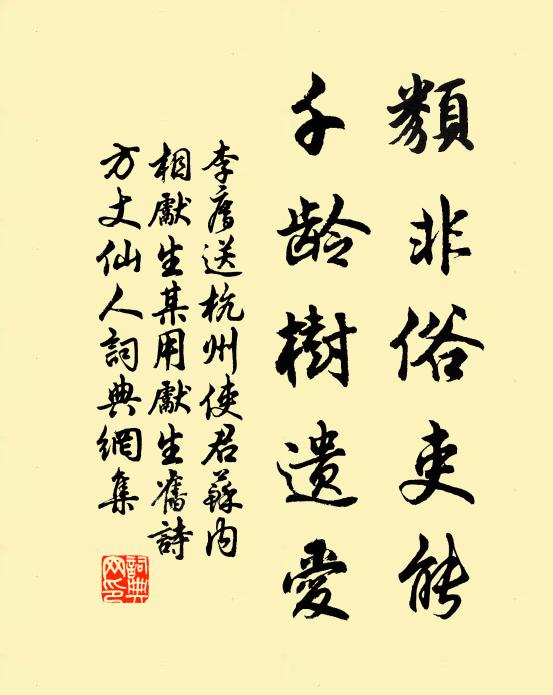 類非俗吏能
千龄樹遗愛
李廌送杭州使君蘇内
相獻生某用獻生舊詩
方丈仙人詞典網集
詞典
网印